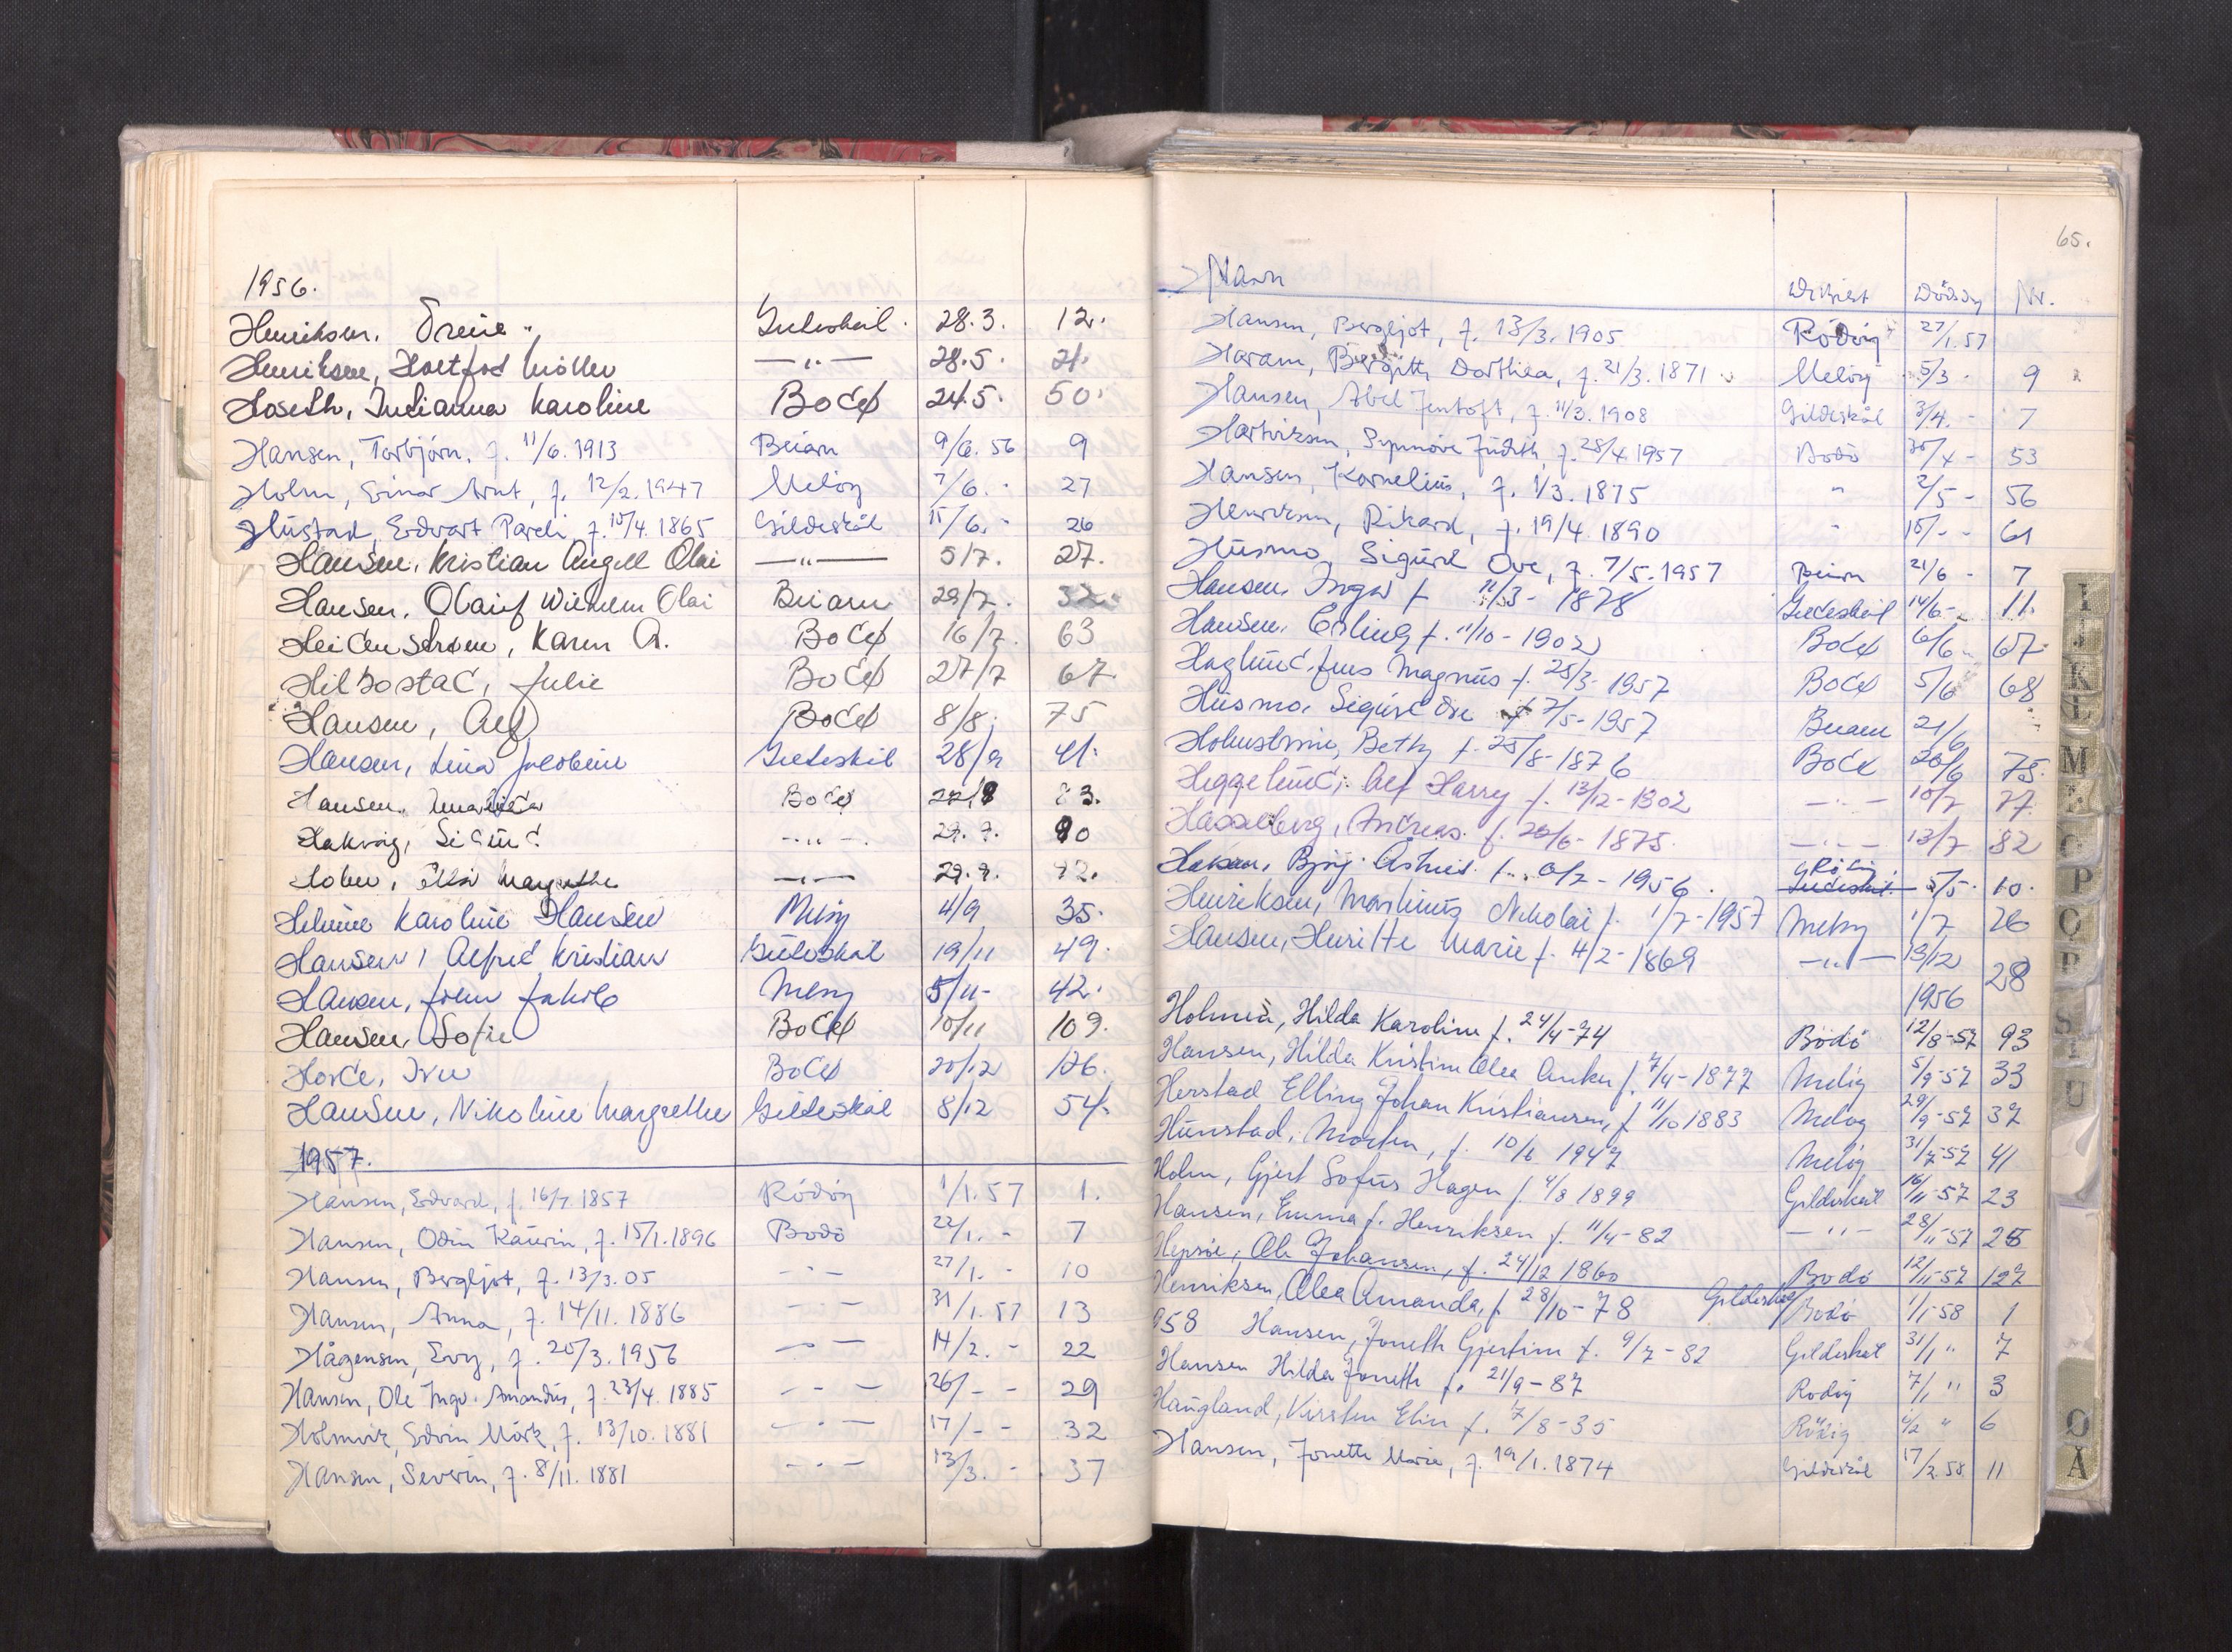 1956.
Henriksen. 28.3. 12.
Henriksen, Hartfod Möller —„— 28.5. 21.
Hoseth, Julianna Karoline Bodø 24.5. 50.
Hansen, Torbjörn, f. 11/6. 1913 Beiarn 9/6. 56 9
Holm, Einar Arnt, f. 12/2. 1947 Melöy 7/6. - 27
Hustad, Edvart Pareli, f. 15/4. 1865 Gildeskål 11/6. - 26
Hansen, Kristian Angell Olai —„— 5/7. 27.
Hansen, Olaif Wilhelm Olai Beiarn 29/7. 32.
Heidenstrøm, Karen A. Bodø 16/7. 63
Hilbostad, Julie Bodø 27/7 67.
Hansen, Alf Bodø 8/8. 75
Hansen, Lina Jakobine Gildeskål 28/9 41.
Hansen, Bodø 83.
Hakvåg, Sigurd —„—. 29.9. 90
Holm, Ella Margrethe —„— 29.9. 92.
Helmine Karoline Hansen Meløy 4/9 35.
Hansen, Alfred Kristian Gildeskål 19/11 49.
Hansen, John Jakob Meløy 5/11- 42.
Hansen, Sofie Bodø 10/11 109.
Horde, Iver Bodø 20/12 126.
Hansen, Nikoline Margrethe Gildeskål 8/12 54.
1957.
Hansen, Edvard, f. 16/7 1857 Rödöy 1/1. 57 1.
Hansen, Odin Kaurin, f. 15/1. 1896 Bodö 22/1. - 7
Hansen, Bergljot, f. 13/3. 05 — - — 27/1. - 10
Hansen, Anna, f. 14/11. 1886 — - — 31/1. 57 13
Hågensen, Evy, f. 20/3. 1956 — - — 14/2. - 22
Hansen, Ole Ingv. Amandus, f. 23/4. 1885 — - — 26/- - 29
Holmvik, Edvin Mörk, f. 13/10. 1881 — - — 17/- - 32
Hansen, Severin, f. 8/11. 1881 — - — 13/3. - 37
65.
Navn Distrikt Dödsdag Nr.
Hansen, Bergljot, f. 13/3. 1905 Rödöy 27/1. 57
Haram, Bergitte Dorthea, f. 21/3. 1871 Melöy 5/3 - 9
Hansen, Abel Jentoft, f. 11/3. 1908 Gildeskål 3/4. - 7
Hartviksen, Synnöve Judith, f. 28/4 1957 Bodö 30/4 - 53
Hansen, Kornelius, f. 1/3. 1875 " 2/5 - 56
Henriksen, Rikard, f. 19/4 1890 " 15/- - 61
Husmo, Sigurd Ove, f. 7/5. 1957 Beiarn 21/6 - 7
Hansen, Ingv f 11/3 - 1878 Gildeskål 14/6- 11.
Hansen, Erling f. 11/10 - 1902 Bodø 6/6 - 67.
Haglund, Jens Magnus f. 25/3- 1957 Bodø 5/6 68
Husmo, Sigurd Ove f 7/5- 1957 Beiarn 21/6
Holmstrøm, Betty f. 25/8-1876 Bodø 20/6 75.
Heggelund, Alf Harry f. 13/12-1902 —„— 10/7 77.
Hasselberg, Andreas f. 20/6- 1875. —„— 13/7 82
Bjørg Astrid f. - 1956. Rödöy Gildeskål 5/5. 10.
Henriksen, Martinus Nikolai f. 1/7-1957 Meløy 1/7 26
Hansen, Henritte Marie f. 4/2-1869 —„— 13/12 28
1956
Hilda Karoline f. 24/4-74 Bodö 12/8-57 93
Hansen, Hilda Kristine Olea Anker f. 7/4-1877 Melöy 5/9-57 33
Herstad Elling Johan Kristiansen, f 11/10 1883 Melöy 29/9-57 37
Hunstad, Morten, f. 10/6 1947 Melöy 31/7-57 41
Holm, Gjert Sofus Hagen f. 4/8 1899 Gildeskål 16/11-57 23
Hansen, Emma f. Henriksen f. 11/4-82 — „ — 28/11-57 25
Ole Johansen, f. 24/12 1860 Bodö 12/11-57 127
Henriksen, Olea Amanda, f 28/10-78 Gildeskål Bodö 1/1-58 1
958 Hansen, Joneth Gjertine f. 9/7-82 Gildeskål 31/1 " 7
Hansen Hilda Joneth f. 21/9-87 Rodöy 7/1 " 3
Haugland, Kirsten Elin f. 7/8-35 Rödöy 4/2 " 6
Hansen, Jonette Marie, f. 19/1. 1874 Gildeskål 17/2. 58 11
I
J
K
L
M
O
P
O
P
S
U
Ø
A